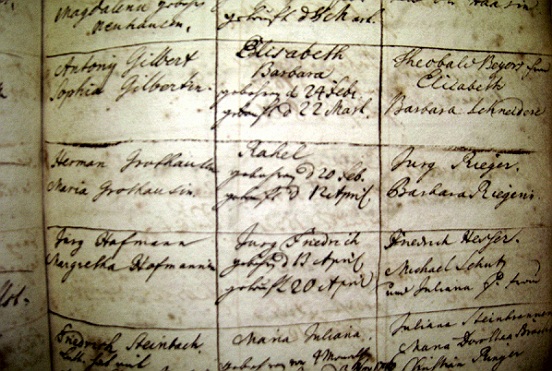 Magdalena
Neuhausin.
getauft d 8 Mart.
Antony Gilbert
Sophia Gilbertin.
Elisabeth
Barbara
gebohren d 24 Febr.
getauft d 22 Mart.
Theobald Beyers frau
Elisabeth
Barbara Schneiderin
Herman Grothausen
Maria Grothausin.
Rahel
gebohren d 20 Feb.
getauft d 12 April.
Jurg Rieger.
Barbara Riegerin
Jurg Hofmann
Margretha Hofmannin
Jurg Friedrich
gebohren d 13 April
getauft 20 April
Friedrich Hesser.
Michael Schutz
und Juliana s. frau
Friedrich Steinbach
Maria Juliana.
gebohren vor 4 Monath
Juliana Steinbrenner
Maria Dorothea
Christian